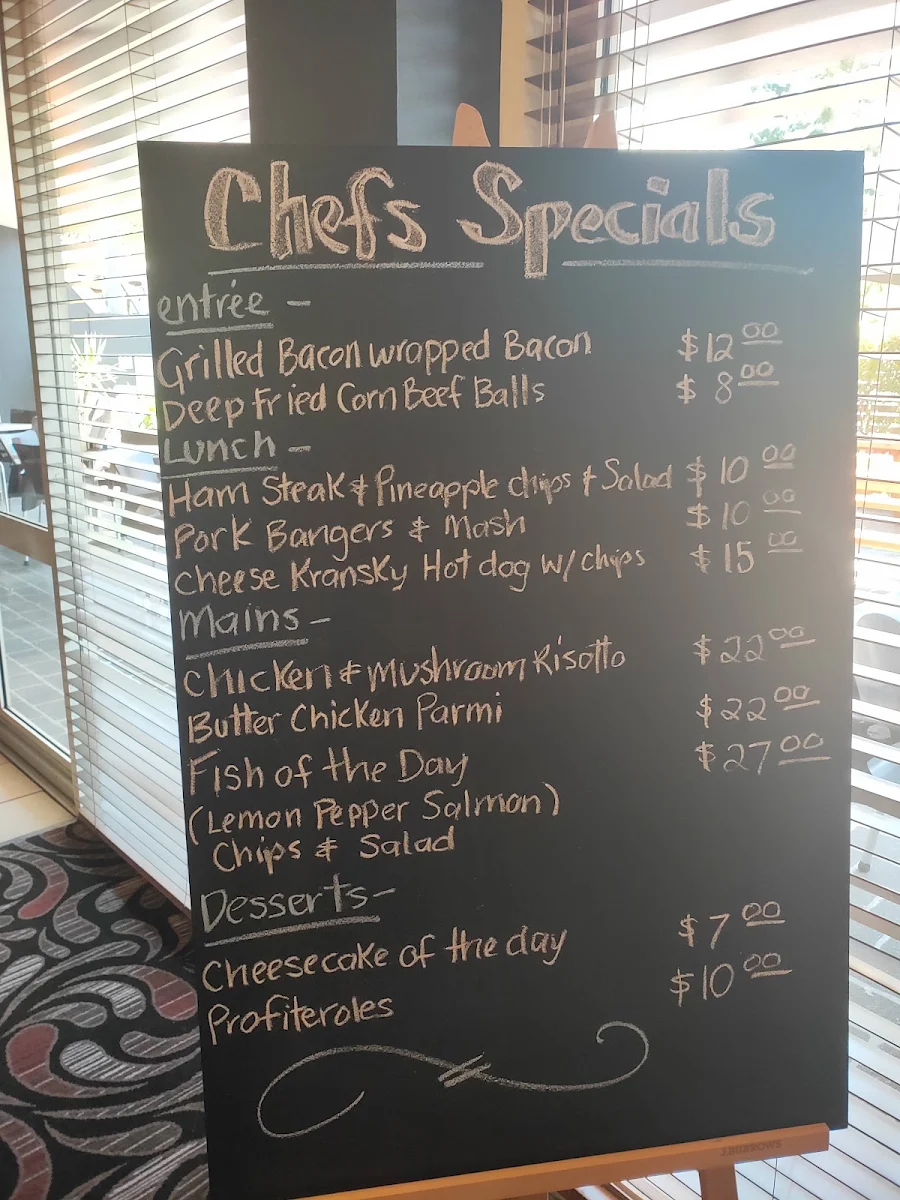 Chefs Specials
entrée -
Grilled Bacon wrapped Bacon $12 00
Deep Fried Corn Beef Balls $ 8 00
Lunch -
Ham Steak & Pineapple chips & Salad $10 00
Pork Bangers & Mash $10 00
Cheese Kransky Hot dog w/ chips $15 00
Mains -
Chicken & Mushroom Risotto $22 00
Butter Chicken Parmi $22 00
Fish of the Day $27 00
(Lemon Pepper Salmon)
Chips & Salad
Desserts -
Cheesecake of the day $7 00
Profiteroles $10 00
J.BURROWS